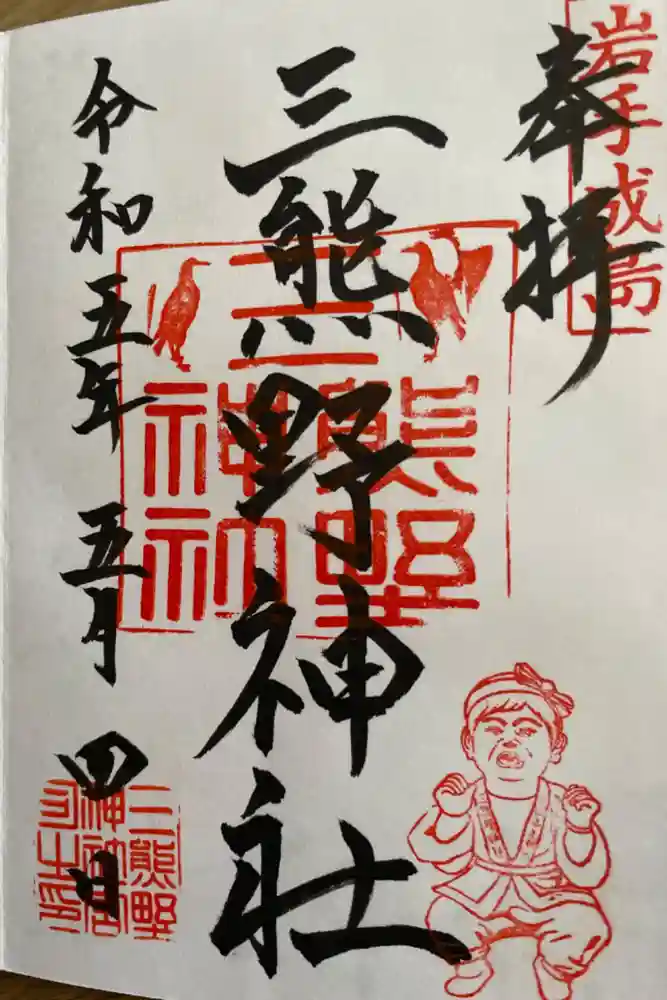 岩手成島
奉拝
三熊野神社
三熊野神社
令和五年 五月 四日
三熊野
神社宮
司之印